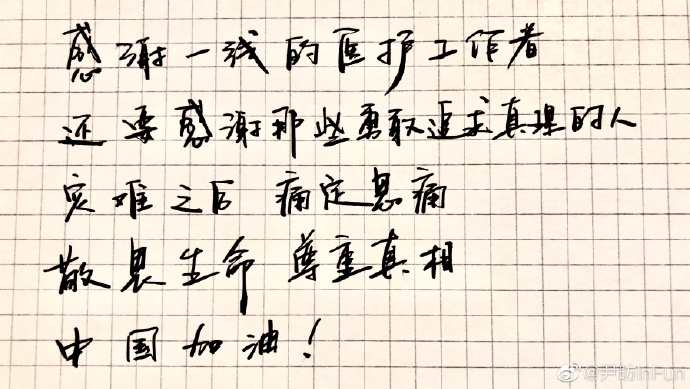 感谢一线的医护工作者
还要感谢那些勇敢追求真理的人
灾难之后 痛定思痛
敬畏生命 尊重真相
中国加油！
@尹昉InFun